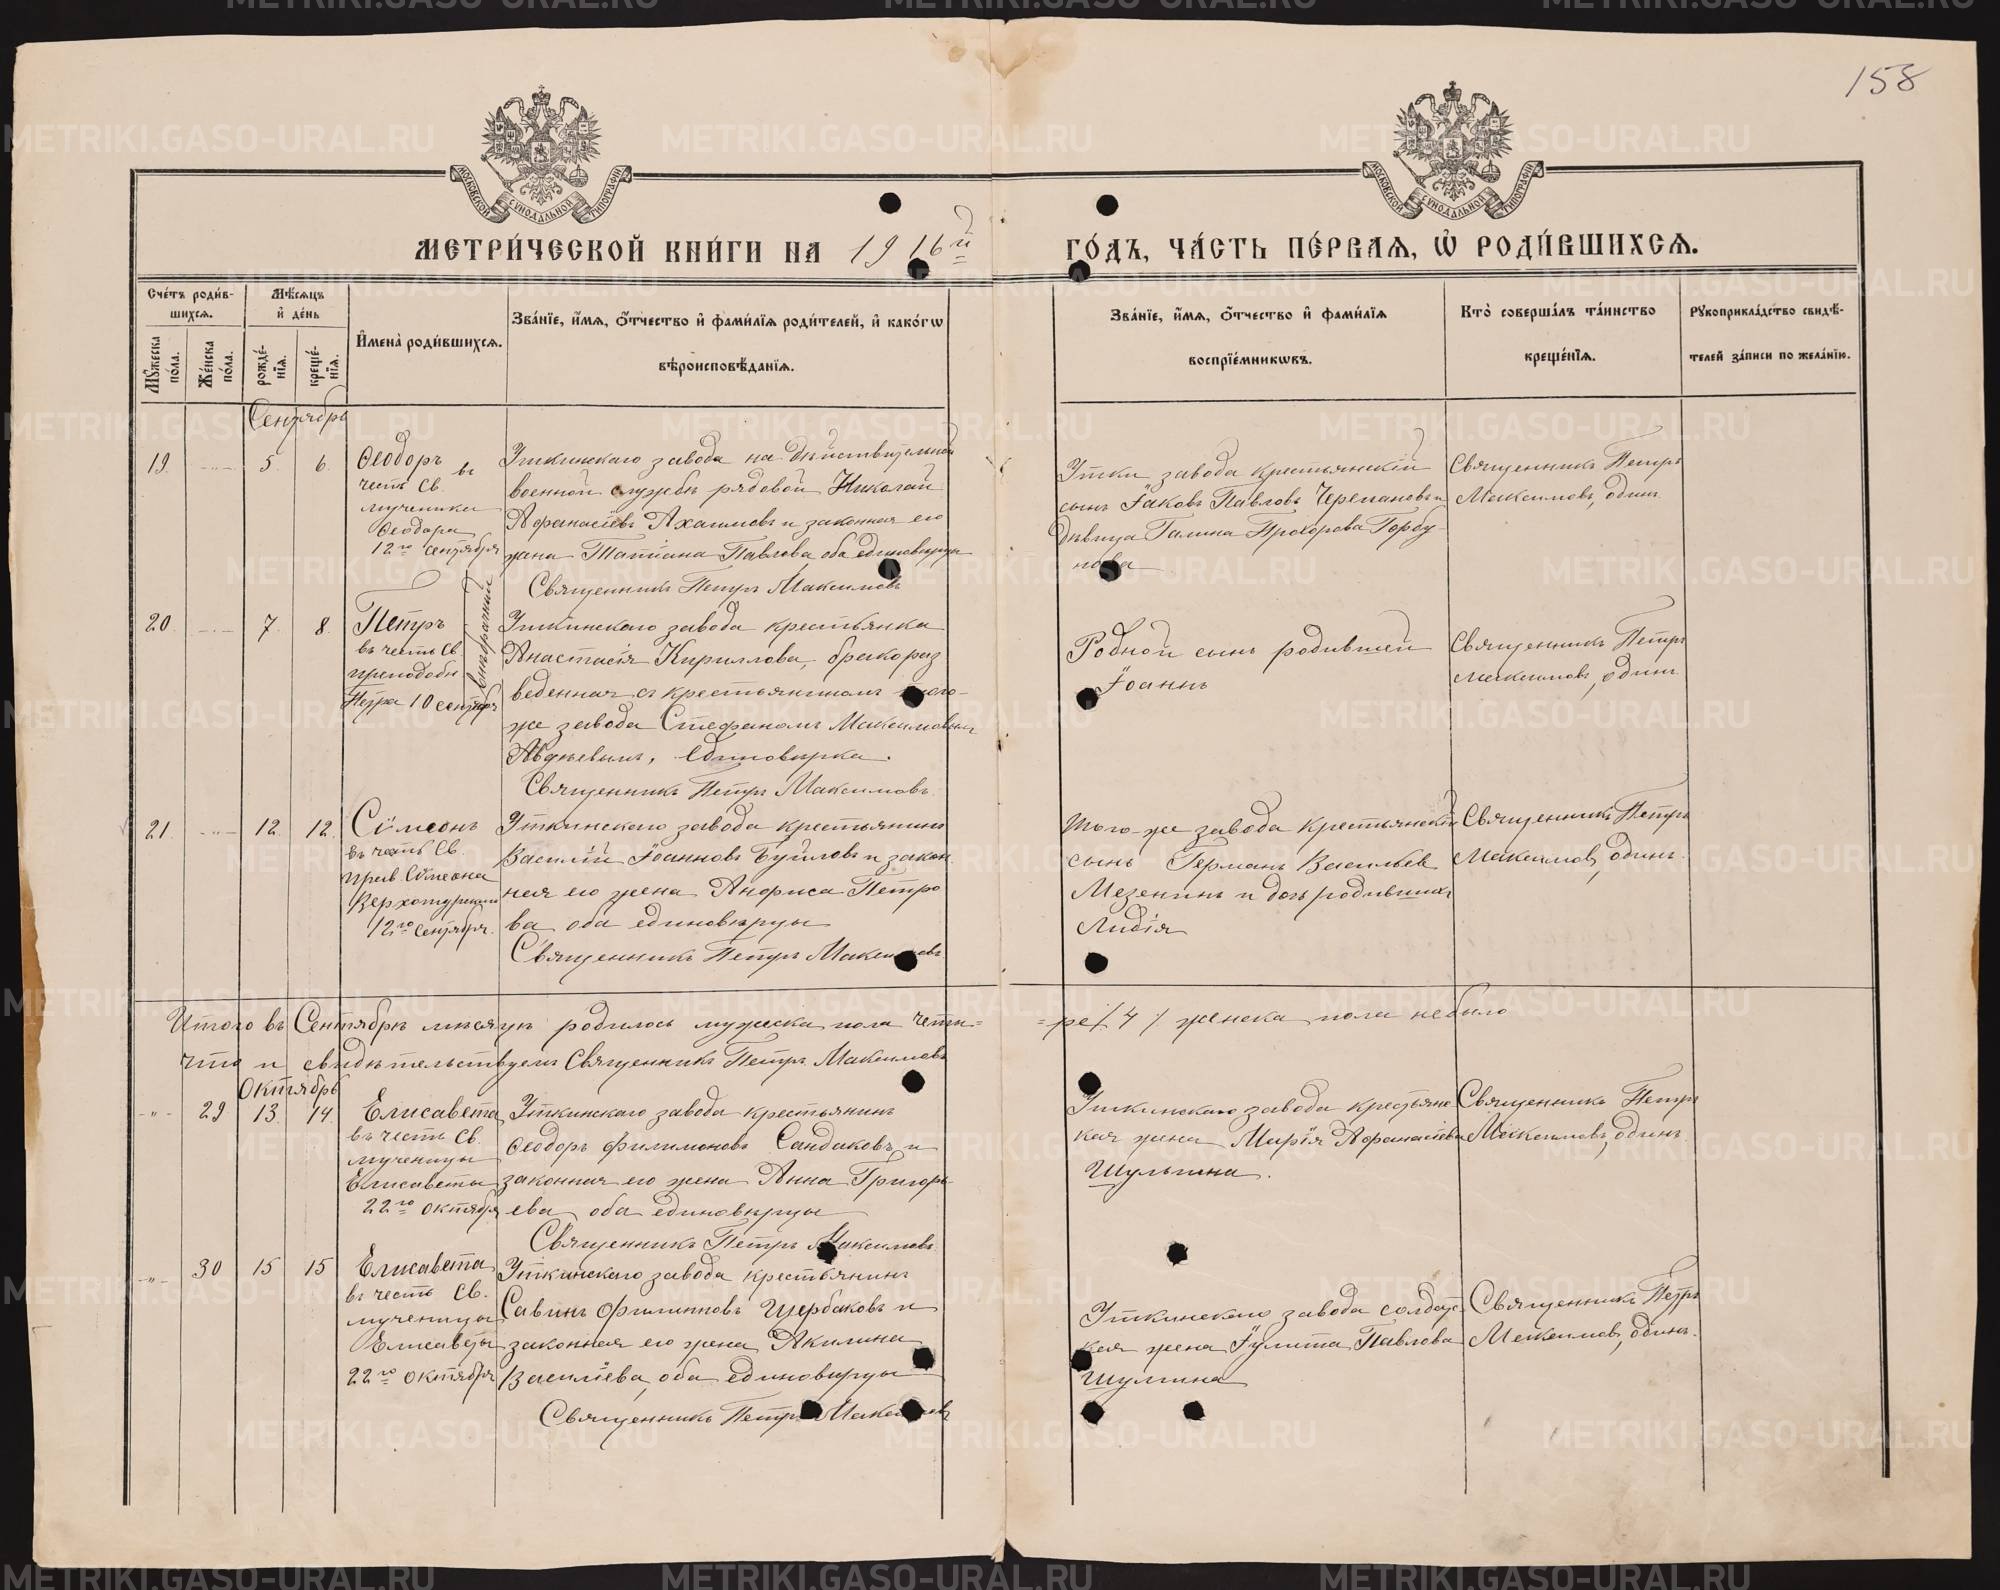 158
МОСКОВСКОЙ СУНОДАЛЬНОЙ ТИПОГРАФІИ
МОСКОВСКОЙ СУНОДАЛЬНОЙ ТИПОГРАФІИ
МЕТРИ́ЧЕСКОЙ КНИ́ГИ НА 1916й ГО́ДЪ, ЧА́СТЬ ПЕ́РВАЯ, Ѡ РОДИ́ВШИХСЯ.
Сче́тъ роди́в-
шихся.
Му́жеска по́ла.
Же́нска по́ла.
Мѣ́сяцъ
и де́нь
рожде́-
нія.
креще́-
нія.
Имена̀ роди́вшихся.
Зва́ніе, и́мя, о́тчество и фами́лія роди́телей, и како́гѡ
вѣроисповѣ́данія.
Зва́ніе, и́мя, о́тчество и фами́лія
воспріе́мникѡвъ.
Кто̀ соверша́лъ та́инство
креще́нія.
Рукоприкла́дство свидѣ́-
телей за́писи по жела́нію.
Сентябрь
19. 5 6.
Ѳеодоръ въ
честь Св.
мученика
Ѳеодора
12го сентября
Уткинскаго завода на дѣйствительной
военной службѣ рядовой Николай
Аѳанасіевъ Ахаимовъ и законная его
жена Татіана Павлова оба единовѣрцы
Священникъ Петръ Максимовъ
Утки завода крестьянскій
сынъ Іаковъ Павловъ Черепановъ и
дѣвица Галина Прохорова Горбу-
нова
Священникъ Петръ
Максимовъ, одинъ
20. 7. 8.
Петръ
въ честь Св.
преподобн
Петра 10 сентября
внѣбрачный
Уткинскаго завода крестьянка
Анастасія Кириллова, бракораз
веденная съ крестьяниномъ того-
же завода Стефаномъ Максимовым
Авдѣевымъ, единовѣрка.
Священникъ Петръ Максимовъ.
Родной сынъ родившей
Іоаннъ
Священникъ Петръ
Максимовъ, одинъ
21. 12. 12.
Сѵмеонъ
въ честь Св.
прав. Сѵмеона
Верхотурскаго
12го Сентября.
Уткинскаго завода крестьянинъ
Василій Іоанновъ Буйловъ и закон
ная его жена Анѳиса Петро
ва оба единовѣрцы
Священникъ Петръ Максимовъ
Того-же завода крестьянскій
сынъ Германъ Васильев
Мезенинъ и дочь родившихъ
Лидія
Священникъ Петръ
Максимовъ, одинъ.
Итого въ Сентябрѣ мѣсяцѣ родилось мужеска пола четы=
=ре /4/ женска пола небыло
что и свидѣтельствуемъ Священникъ Петръ Максимовъ
Октябрь
-"- 29 13. 14.
Елисавета
въ честь Св.
мученицы
Елисаветы
22го октября
Уткинскаго завода крестьянинъ
Ѳеодоръ Филимоновъ Сандаковъ и
законная его жена Анна Григорь-
ева оба единовѣрцы
Священникъ Петръ Максимовъ
Уткинскаго завода крестьянс
кая жена Марія Аѳанасіева
Шульгина.
Священникъ Петръ
Максимовъ, одинъ.
-"- 30 15 15
Елисавета
въ честь Св.
мученицы
Елисаветы
22го октября
Уткинскаго завода крестьянинъ
Савинъ Филипповъ Щербаковъ и
законная его жена Акилина
Василіева, оба единовѣрцы
Священникъ Петръ Максимовъ
Уткинскаго завода солдатс
кая жена Іулита Павлова
Шулгина
Священникъ Петръ
Максимовъ, одинъ.
METRIKI.GASO-URAL.RU